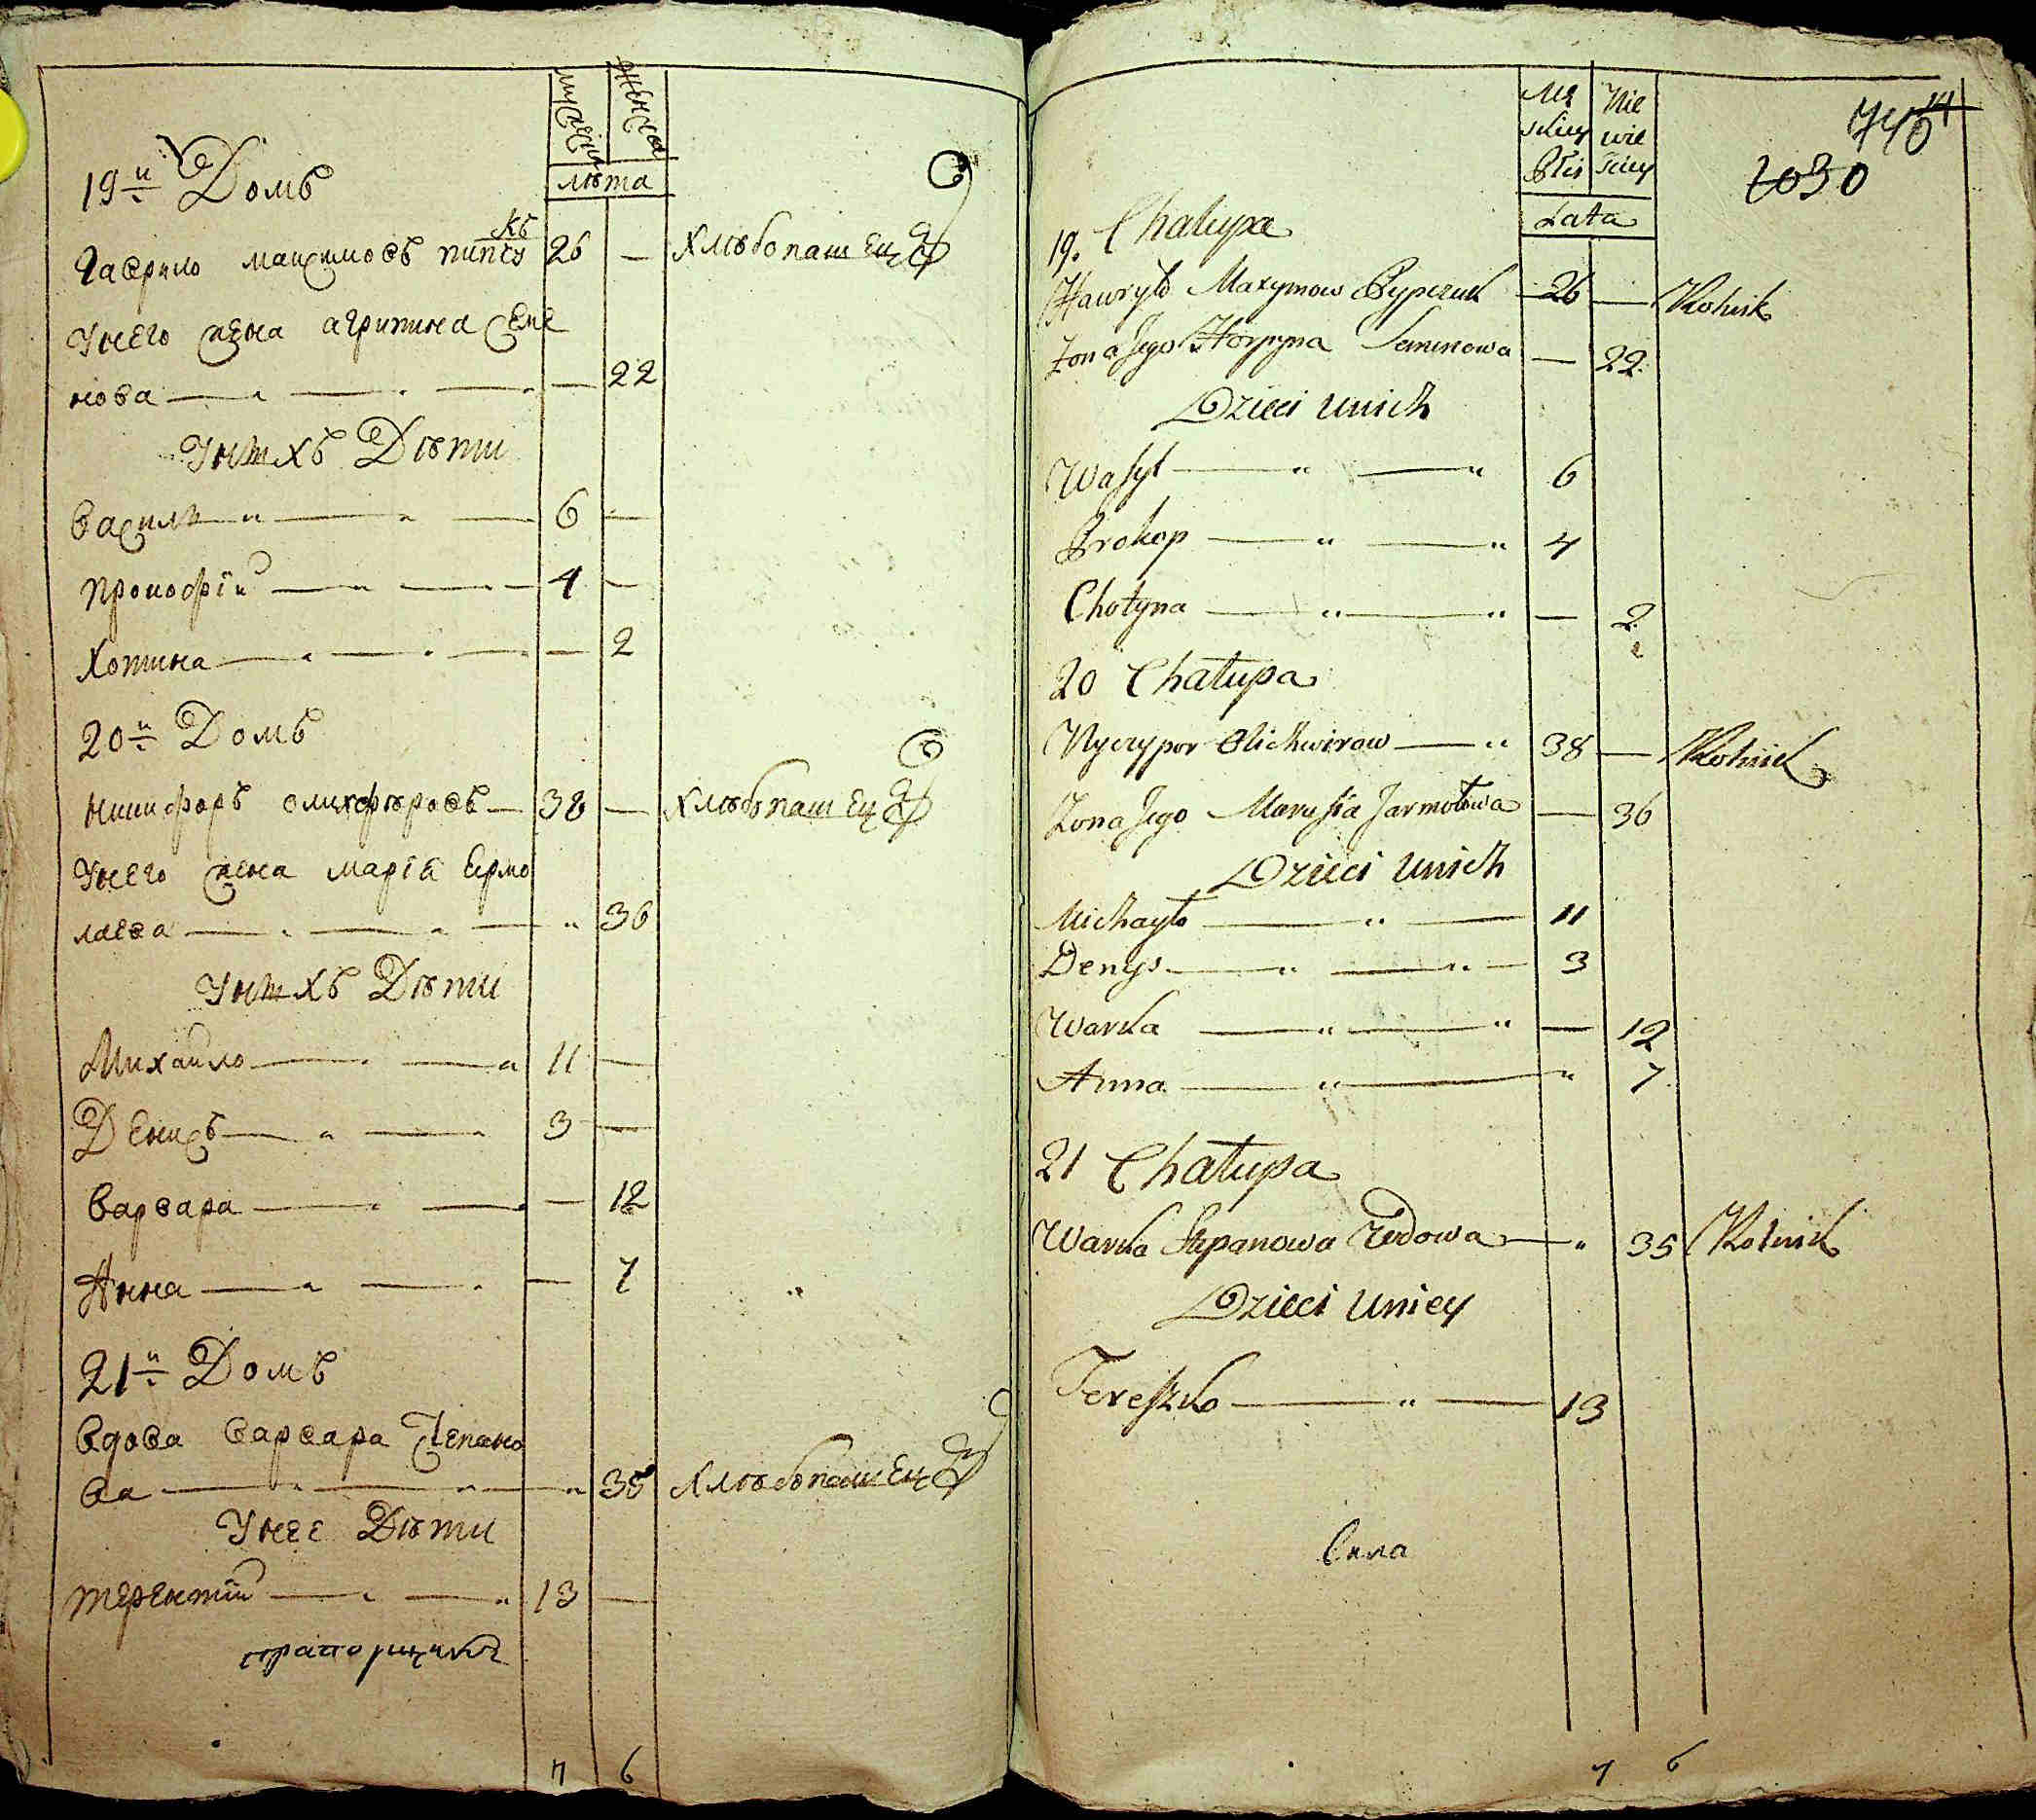 мужеска
женска
лѣта
19й Домъ
Гаврило максимовъ пипчу 26 — хлѣбопашецъ
къ
Унего жена агрипина Семе
нова — 22
Унихъ Дѣти
василь 6 —
прокофій 4 —
Хотина — 2
20й Домъ
никифоръ олихфѣровъ — 38 — хлѣбопашецъ
Унего жена марія Ермо
лаева 36
Унихъ Дѣти
Михайло 11 —
Денисъ 3 —
варвара — 12
Анна — 7
21й Домъ
вдова варвара Степано
ва 35 хлѣбопашецъ
Унее Дѣти
терентій 13 —
прапорщикъ
7 6
Mę
skiey
Płci
Nie
wie
sciey
Lata
746
14
2030
19. Chałupa
Hawryło Maxymow Pypczuk 26 — Rolnik
Zona Jego Horpyna Semenowa — 22
Dzieci unich
Wasyl 6
Prokop 4
Chotyna — 2
20 Chałupa
Nyczypor Olichwirow 38 — Rolnik
Zona Jego Marusia Jarmołowa — 36
Dzieci unich
Michayło 11
Denys 3
Warka — 12
Anna 7
21 Chałupa
Warka Stepanowa Wdowa 35 Rolnik
Dzieci uniey
Tereszko 13
Сила
7 6